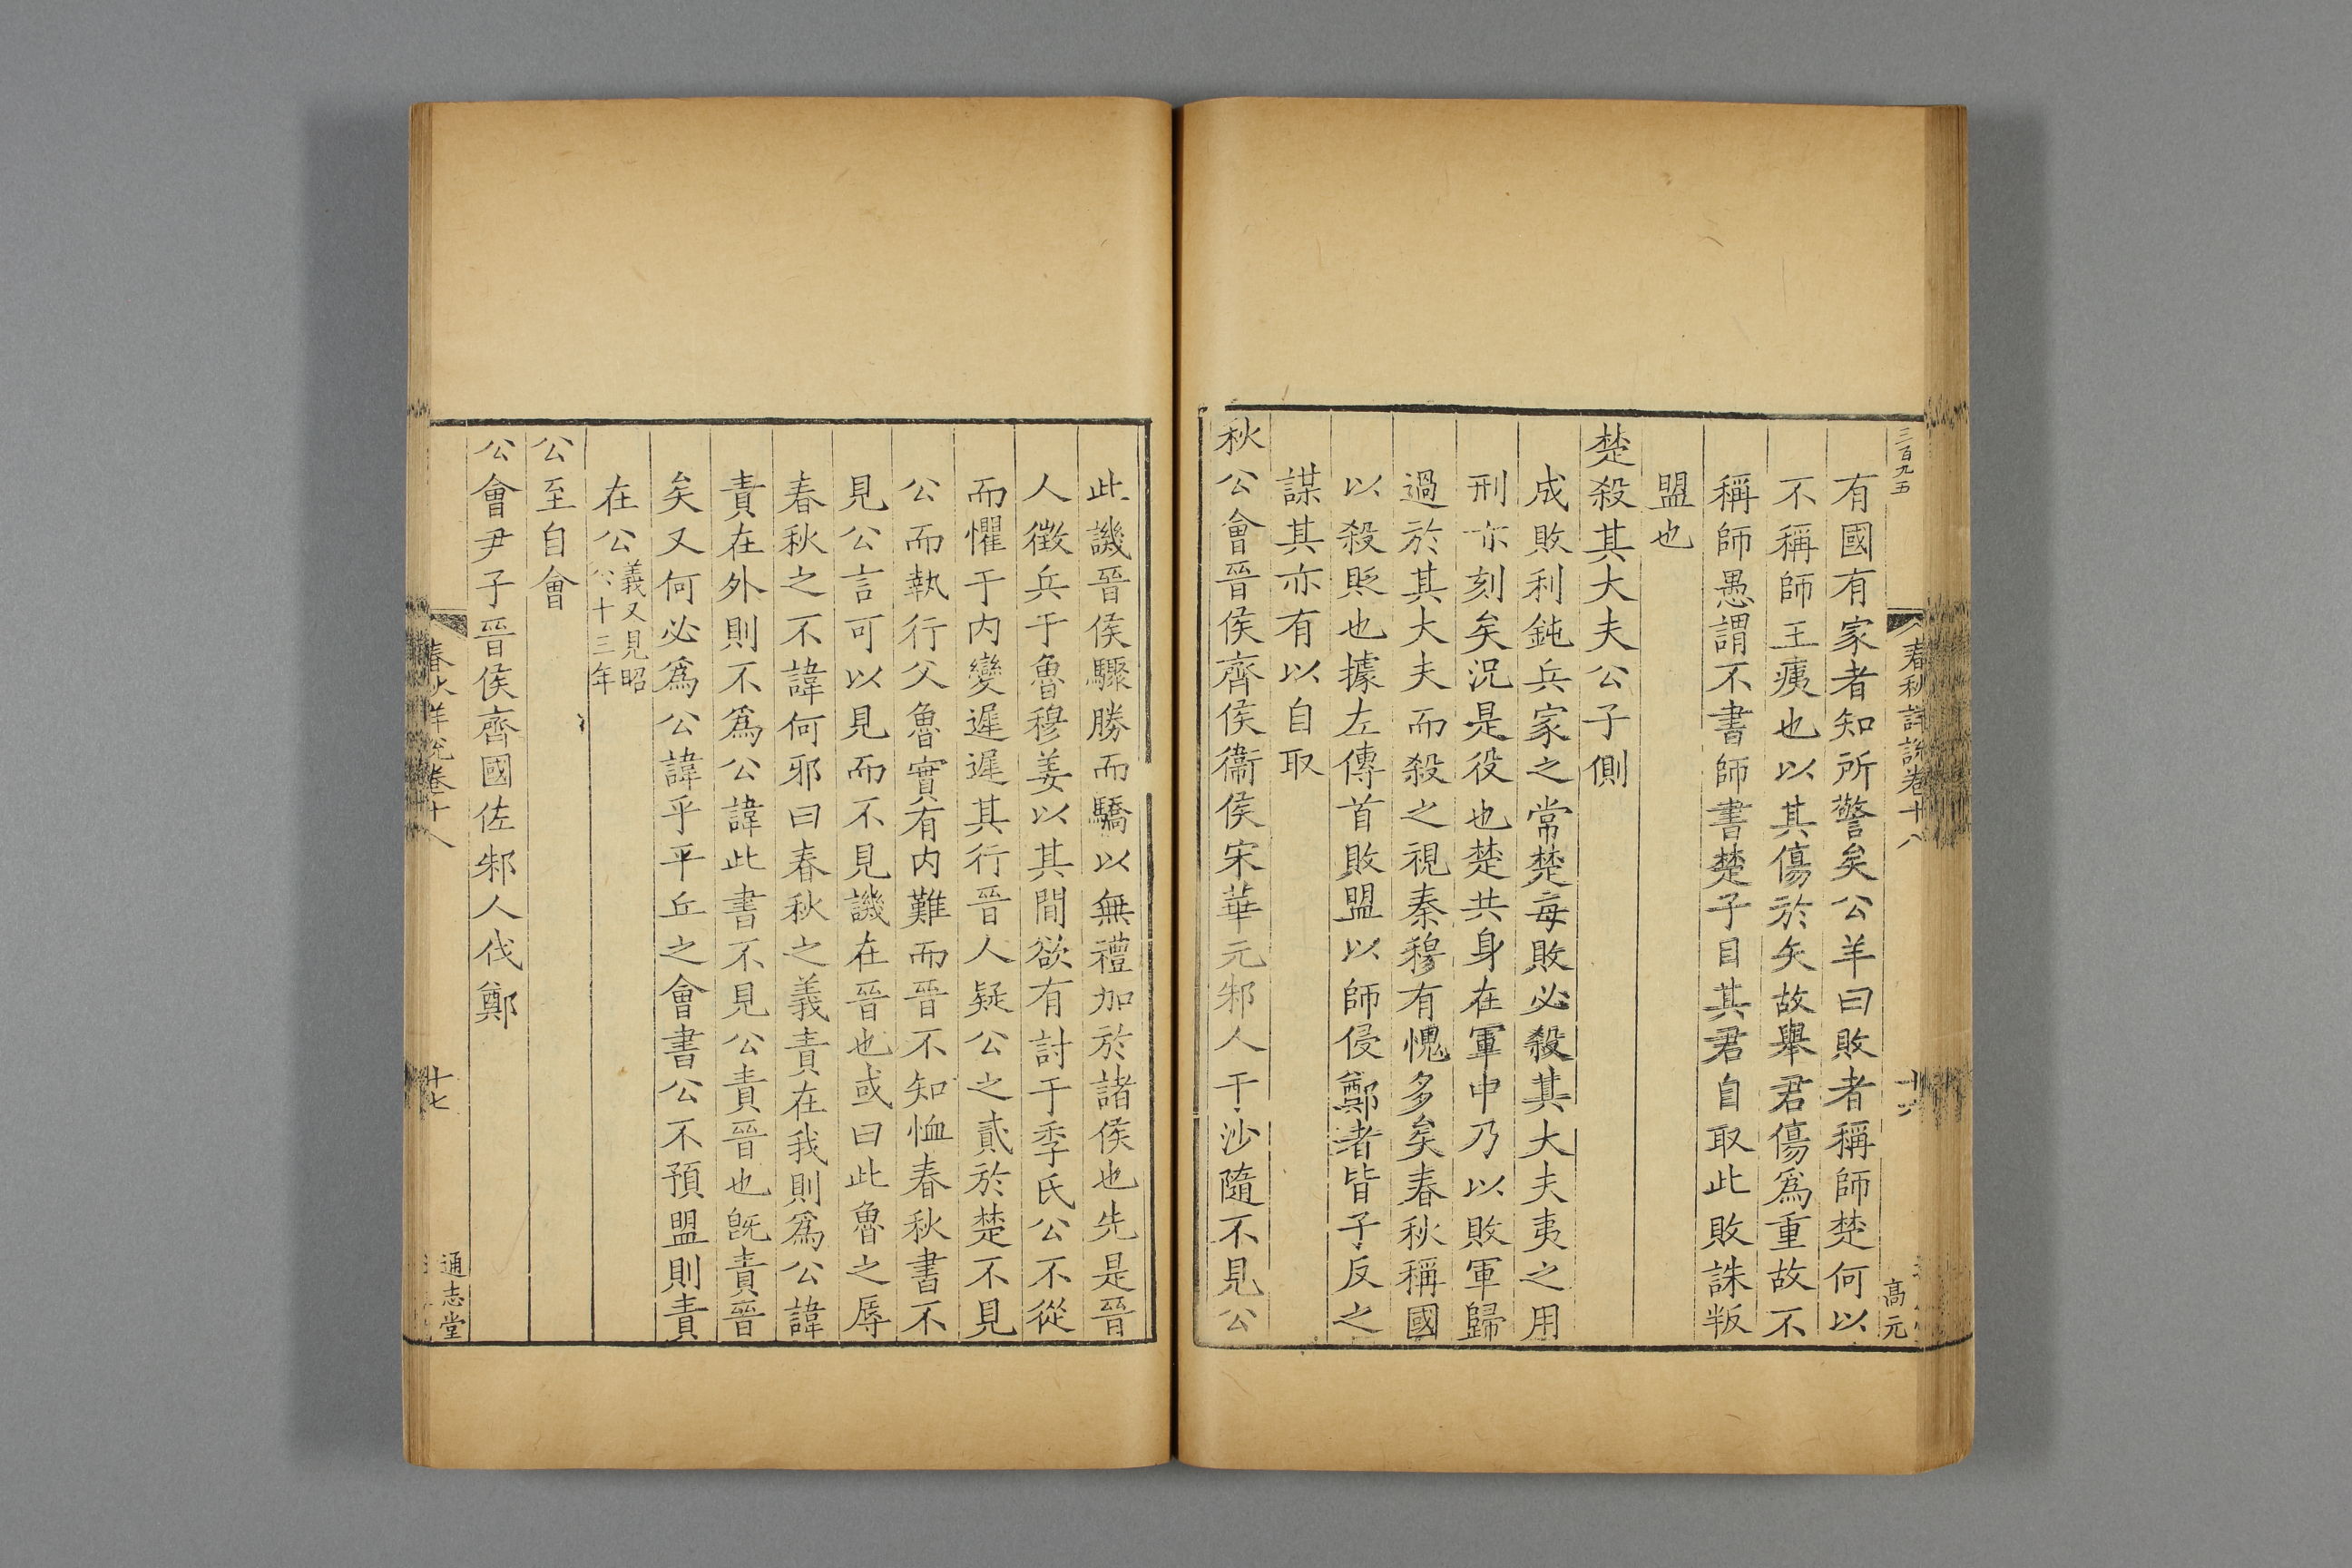 三百九五
春秋詳說卷十八
高元
有國有家者知所警矣公羊曰敗者稱師楚何以
不稱師王痍也以其傷於矢故舉君傷爲重故不
稱師愚謂不書師書楚子目其君自取此敗誅叛
盟也
楚殺其大夫公子側
成敗利鈍兵家之常楚每敗必殺其大夫夷之用
刑亦刻矣況是役也楚共身在軍中乃以敗軍歸
過於其大夫而殺之視秦穆有愧多矣春秋稱國
以殺貶也據左傳首敗盟以師侵鄭者皆子反之
謀其亦有以自取
秋公會晉侯齊侯衞侯宋華元邾人于沙隨不見公
此譏晉侯驟勝而驕以無禮加於諸侯也先是晉
人徵兵于魯穆姜以其間欲有討于季氏公不從
而懼于内變遲遲其行晉人疑公之貳於楚不見
公而執行父魯實有内難而晉不知恤春秋書不
見公言可以見而不見譏在晉也或曰此魯之辱
春秋之不諱何邪曰春秋之義責在我則爲公諱
責在外則不爲公諱此書不見公責晉也旣責晉
矣又何必爲公諱乎平丘之會書公不預盟則責
在公義又見昭
公十三年
公至自會
公會尹子晉侯齊國佐邾人伐鄭
春秋詳說卷十八
十七
通志堂